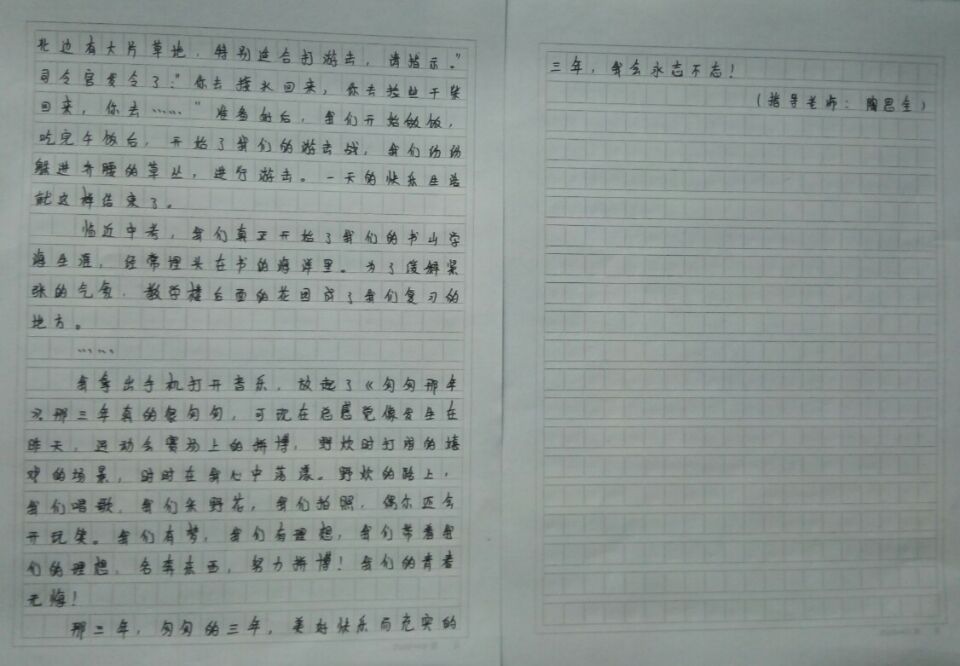 北边有大片草地，特别适合打游击，请指示。”
司令官发令了：“你去接水回来，你去捡些干柴
回来，你去……”准备好后，我们开始做饭，
吃完午饭后，开始了我们的游击战，我们纷纷
躲进齐腰的草丛，进行游击。一天的快乐生活
就这样结束了。
临近中考，我们真正开始了我们的书山学
海生涯，经常埋头在书的海洋里。为了缓解紧
张的气氛，教学楼后面的花园成了我们复习的
地方。
……
我拿出手机打开音乐，放起了《匆匆那年
》那三年真的很匆匆，可现在总感觉像发生在
昨天，运动会赛场上的拼博，野炊时打闹的嬉
戏的场景，时时在我心中荡漾。野炊的路上，
我们唱歌，我们采野花，我们拍照，偶尔还会
开玩笑。我们有梦，我们有理想，我们带着我
们的理想，各奔东西，努力拼博！我们的青春
无悔！
那三年，匆匆的三年，美好快乐而充实的
三年，我会永志不忘！
（指导老师：陶思全）